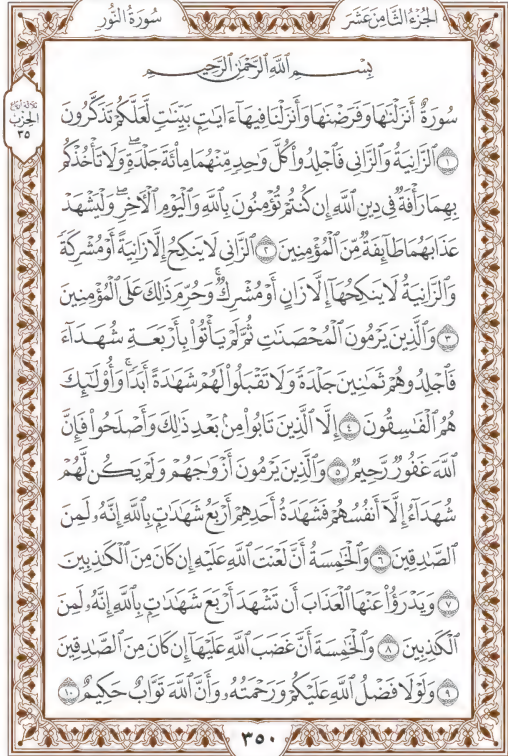 الجُزْءُ الثَّامِنَ عَشَرَ
سُورَةُ النُّورِ
الحِزْبُ
٣٥
بِسْمِ ٱللَّهِ ٱلرَّحْمَٰنِ ٱلرَّحِيمِ
سُورَةٌ أَنزَلْنَٰهَا وَفَرَضْنَٰهَا وَأَنزَلْنَا فِيهَآ ءَايَٰتٍۭ بَيِّنَٰتٍ لَّعَلَّكُمْ تَذَكَّرُونَ
١ ٱلزَّانِيَةُ وَٱلزَّانِى فَٱجْلِدُوا۟ كُلَّ وَٰحِدٍ مِّنْهُمَا مِا۟ئَةَ جَلْدَةٍ ۖ وَلَا تَأْخُذْكُم
بِهِمَا رَأْفَةٌ فِى دِينِ ٱللَّهِ إِن كُنتُمْ تُؤْمِنُونَ بِٱللَّهِ وَٱلْيَوْمِ ٱلْءَاخِرِ ۖ وَلْيَشْهَدْ
عَذَابَهُمَا طَآئِفَةٌ مِّنَ ٱلْمُؤْمِنِينَ ٢ ٱلزَّانِى لَا يَنكِحُ إِلَّا زَانِيَةً أَوْ مُشْرِكَةً
وَٱلزَّانِيَةُ لَا يَنكِحُهَآ إِلَّا زَانٍ أَوْ مُشْرِكٌ ۚ وَحُرِّمَ ذَٰلِكَ عَلَى ٱلْمُؤْمِنِينَ
٣ وَٱلَّذِينَ يَرْمُونَ ٱلْمُحْصَنَٰتِ ثُمَّ لَمْ يَأْتُوا۟ بِأَرْبَعَةِ شُهَدَآءَ
فَٱجْلِدُوهُمْ ثَمَٰنِينَ جَلْدَةً وَلَا تَقْبَلُوا۟ لَهُمْ شَهَٰدَةً أَبَدًا ۚ وَأُو۟لَٰٓئِكَ
هُمُ ٱلْفَٰسِقُونَ ٤ إِلَّا ٱلَّذِينَ تَابُوا۟ مِنۢ بَعْدِ ذَٰلِكَ وَأَصْلَحُوا۟ فَإِنَّ
ٱللَّهَ غَفُورٌ رَّحِيمٌ ٥ وَٱلَّذِينَ يَرْمُونَ أَزْوَٰجَهُمْ وَلَمْ يَكُن لَّهُمْ
شُهَدَآءُ إِلَّآ أَنفُسُهُمْ فَشَهَٰدَةُ أَحَدِهِمْ أَرْبَعُ شَهَٰدَٰتٍۭ بِٱللَّهِ إِنَّهُۥ لَمِنَ
ٱلصَّٰدِقِينَ ٦ وَٱلْخَٰمِسَةُ أَنَّ لَعْنَتَ ٱللَّهِ عَلَيْهِ إِن كَانَ مِنَ ٱلْكَٰذِبِينَ
٧ وَيَدْرَؤُا۟ عَنْهَا ٱلْعَذَابَ أَن تَشْهَدَ أَرْبَعَ شَهَٰدَٰتٍۭ بِٱللَّهِ إِنَّهُۥ لَمِنَ
ٱلْكَٰذِبِينَ ٨ وَٱلْخَٰمِسَةَ أَنَّ غَضَبَ ٱللَّهِ عَلَيْهَآ إِن كَانَ مِنَ ٱلصَّٰدِقِينَ
٩ وَلَوْلَا فَضْلُ ٱللَّهِ عَلَيْكُمْ وَرَحْمَتُهُۥ وَأَنَّ ٱللَّهَ تَوَّابٌ حَكِيمٌ ١٠
٣٥٠